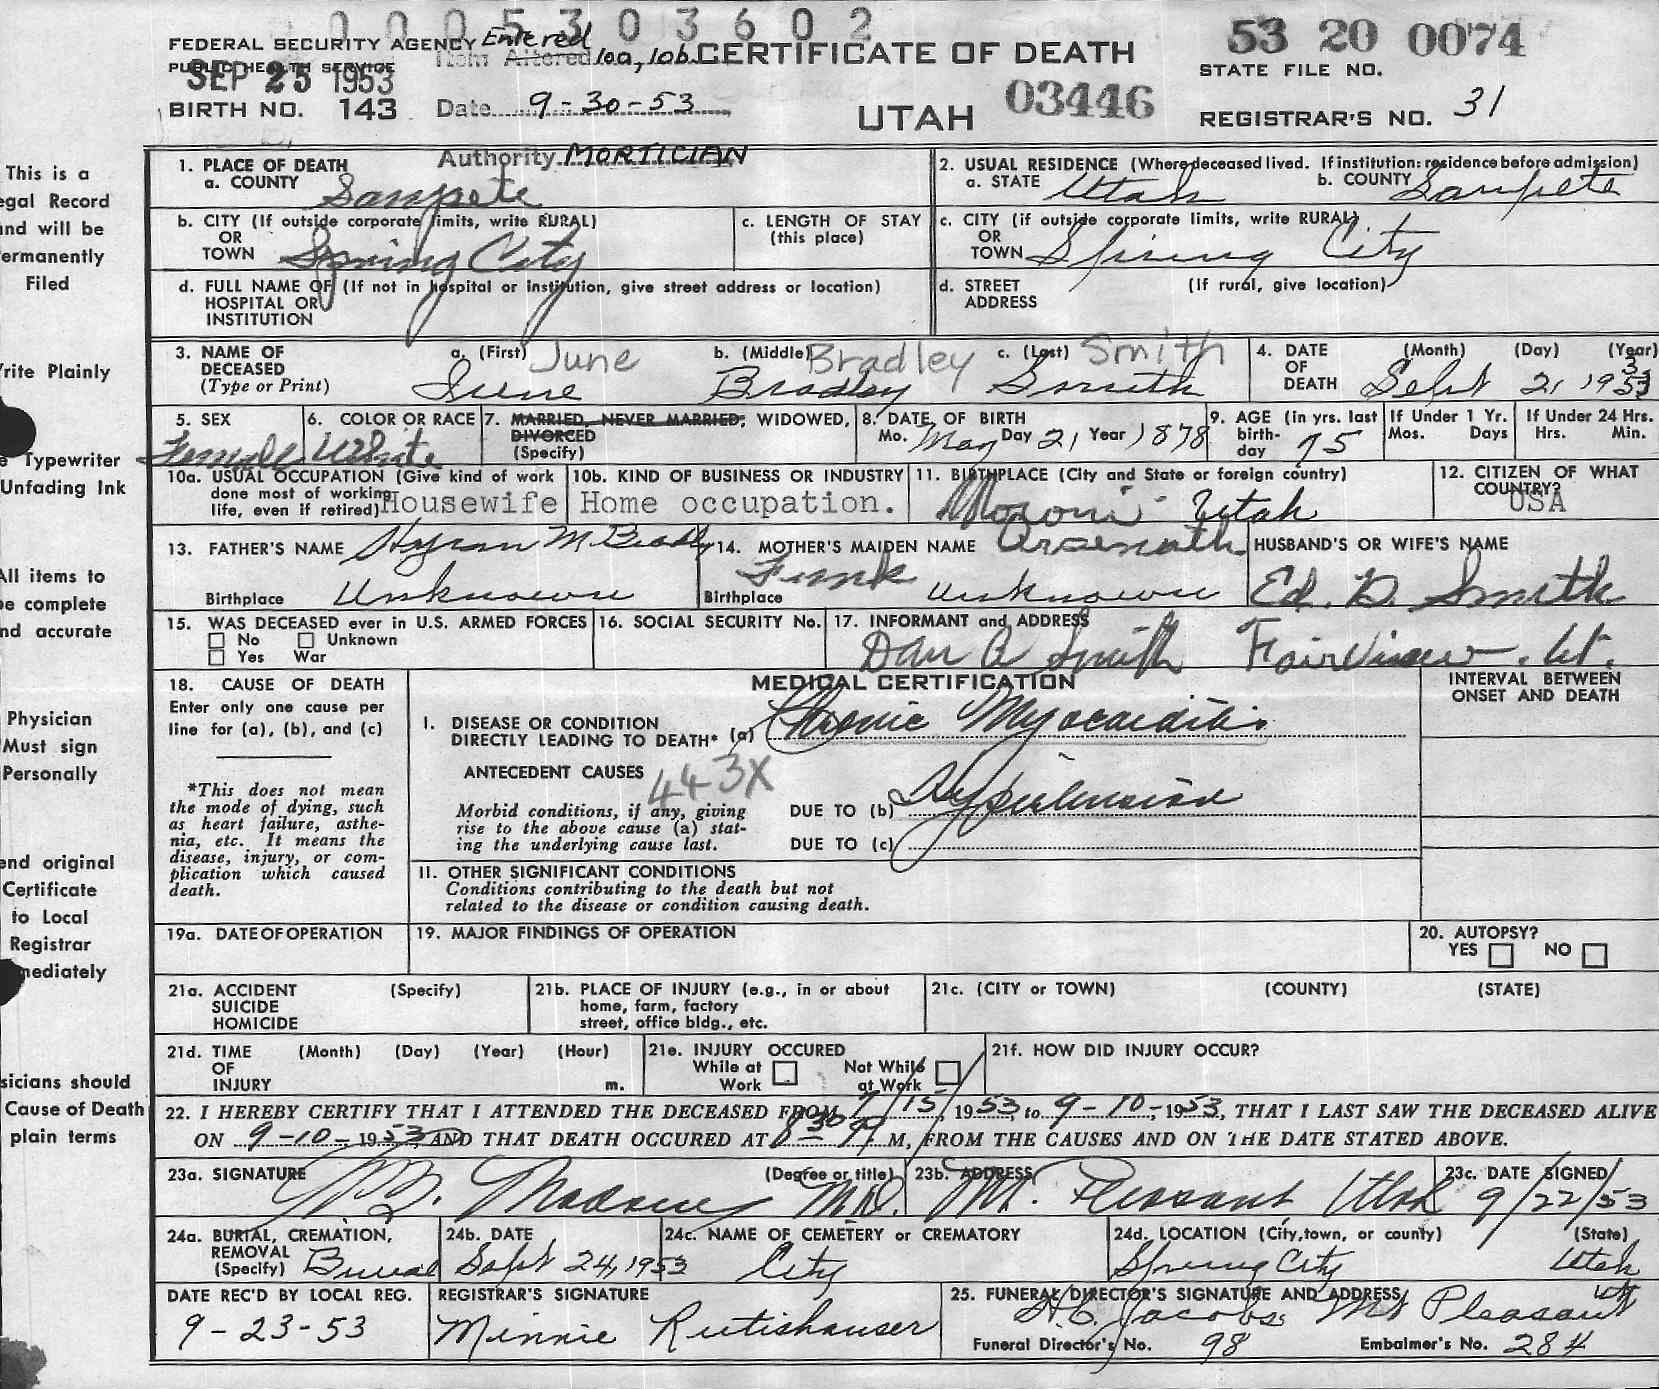 0005303602
FEDERAL SECURITY AGENCY Entered
PUBLIC HEALTH SERVICE Item Altered 10a, 10b CERTIFICATE OF DEATH 53 20 0074
SEP 25 1953 STATE FILE NO.
BIRTH NO. 143 Date 9-30-53 UTAH 03446 REGISTRAR'S NO. 31
Authority MORTICIAN
This is a
egal Record
and will be
ermanently
Filed
rite Plainly
e Typewriter
Unfading Ink
All items to
be complete
nd accurate
Physician
Must sign
Personally
end original
Certificate
to Local
Registrar
mediately
sicians should
Cause of Death
plain terms
1. PLACE OF DEATH
a. COUNTY Sanpete
2. USUAL RESIDENCE (Where deceased lived. If institution: residence before admission)
a. STATE Utah b. COUNTY Sanpete
b. CITY (If outside corporate limits, write RURAL)
OR
TOWN Spring City
c. LENGTH OF STAY
(this place)
c. CITY (if outside corporate limits, write RURAL)
OR
TOWN Spring City
d. FULL NAME OF (If not in hospital or institution, give street address or location)
HOSPITAL OR
INSTITUTION
d. STREET (If rural, give location)
ADDRESS
3. NAME OF DECEASED
(Type or Print)
a. (First) June b. (Middle) Bradley c. (Last) Smith
June Bradley Smith
4. DATE OF DEATH (Month) (Day) (Year)
Sept 21 1953
5. SEX
Female
6. COLOR OR RACE
White
7. MARRIED, NEVER MARRIED, WIDOWED,
DIVORCED
(Specify)
8. DATE OF BIRTH
Mo. May Day 21 Year 1878
9. AGE (in yrs. last
birth-
day 75
If Under 1 Yr.
Mos. Days
If Under 24 Hrs.
Hrs. Min.
10a. USUAL OCCUPATION (Give kind of work
done most of working
life, even if retired) Housewife
10b. KIND OF BUSINESS OR INDUSTRY
Home occupation.
11. BIRTHPLACE (City and State or foreign country)
Moroni Utah
12. CITIZEN OF WHAT
COUNTRY?
USA
13. FATHER'S NAME Hyrum M Bradley
Birthplace Unknown
14. MOTHER'S MAIDEN NAME Arsenath
Funk
Birthplace Unknown
HUSBAND'S OR WIFE'S NAME
Ed. D. Smith
15. WAS DECEASED ever in U.S. ARMED FORCES
No Unknown
Yes War
16. SOCIAL SECURITY No.
17. INFORMANT and ADDRESS
Dan B Smith Fairview. Ut.
18. CAUSE OF DEATH
Enter only one cause per
line for (a), (b), and (c)
*This does not mean
the mode of dying, such
as heart failure, asthe-
nia, etc. It means the
disease, injury, or com-
plication which caused
death.
MEDICAL CERTIFICATION
INTERVAL BETWEEN
ONSET AND DEATH
I. DISEASE OR CONDITION
DIRECTLY LEADING TO DEATH* (a) Chronic Myocarditis
ANTECEDENT CAUSES 443X
Morbid conditions, if any, giving
rise to the above cause (a) stat-
ing the underlying cause last.
DUE TO (b) Hypertension
DUE TO (c)
II. OTHER SIGNIFICANT CONDITIONS
Conditions contributing to the death but not
related to the disease or condition causing death.
19a. DATE OF OPERATION
19. MAJOR FINDINGS OF OPERATION
20. AUTOPSY?
YES NO
21a. ACCIDENT (Specify)
SUICIDE
HOMICIDE
21b. PLACE OF INJURY (e.g., in or about
home, farm, factory
street, office bldg., etc.
21c. (CITY or TOWN) (COUNTY) (STATE)
21d. TIME (Month) (Day) (Year) (Hour)
OF
INJURY m.
21e. INJURY OCCURED
While at Not While
Work at Work
21f. HOW DID INJURY OCCUR?
22. I HEREBY CERTIFY THAT I ATTENDED THE DECEASED FROM 7/15/1953, to 9-10-, 1953, THAT I LAST SAW THE DECEASED ALIVE
ON 9-10-1953, AND THAT DEATH OCCURED AT 8:30 P. M, FROM THE CAUSES AND ON THE DATE STATED ABOVE.
23a. SIGNATURE (Degree or title)
Madsen M.D.
23b. ADDRESS
Mt. Pleasant Utah
23c. DATE SIGNED
9/22/53
24a. BURIAL, CREMATION,
REMOVAL
(Specify) Burial
24b. DATE
Sept 24, 1953
24c. NAME OF CEMETERY OR CREMATORY
City
24d. LOCATION (City, town, or county) (State)
Spring City Utah
DATE REC'D BY LOCAL REG.
9-23-53
REGISTRAR'S SIGNATURE
Minnie Rutishauser
25. FUNERAL DIRECTOR'S SIGNATURE AND ADDRESS
H.C. Jacobs Mt Pleasant Ut
Funeral Director's No. 98 Embalmer's No. 284